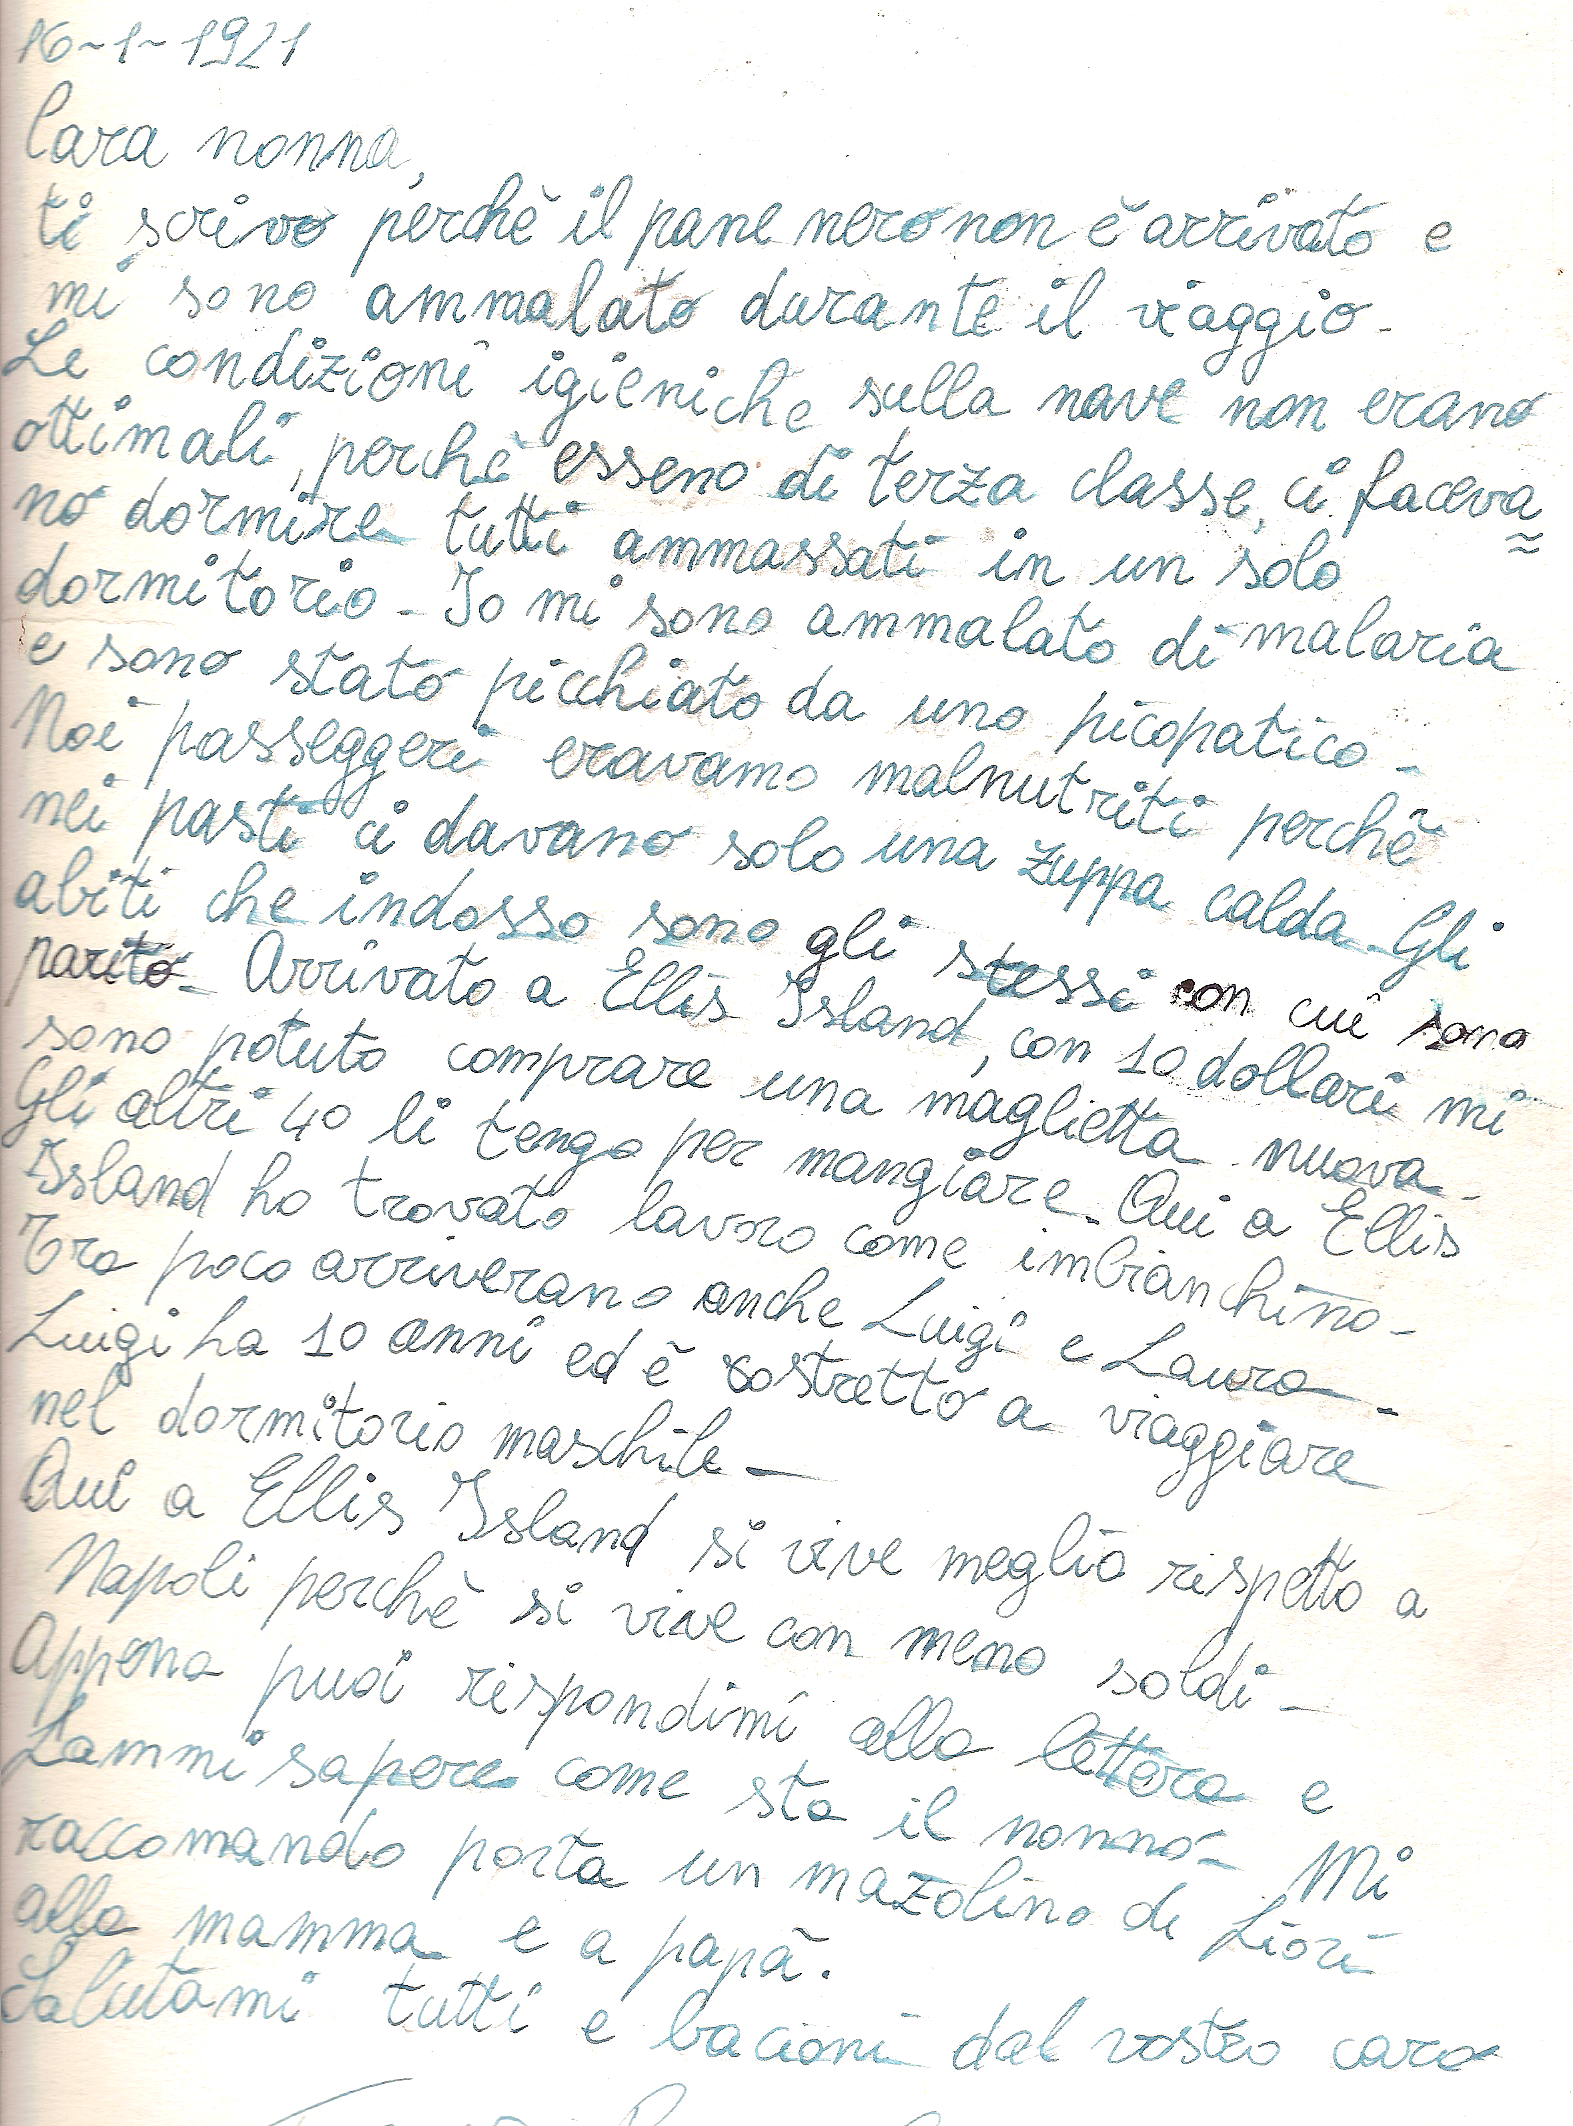 16-1-1921
Cara nonna,
ti scrivo perchè il pane nero non è arrivato e
mi sono ammalato durante il viaggio -
Le condizioni igieniche sulla nave non erano
ottimali, perchè esseno di terza classe, ci faceva=
no dormire tutti ammassati in un solo
dormitorio - Io mi sono ammalato di malaria
e sono stato picchiato da uno picopatico -
Noi passeggeri eravamo malnutriti perchè
nei pasti ci davano solo una zuppa calda - Gli
abiti che indosso sono gli stessi con cui sono
parito - Arrivato a Ellis Island, con 10 dollari mi
sono potuto comprare una maglietta nuova -
Gli altri 40 li tengo per mangiare - Qui a Ellis
Island ho trovato lavoro come imbianchino -
Tra poco arriverano anche Luigi e Laura -
Luigi ha 10 anni ed è costretto a viaggiare
nel dormitorio maschile -
Qui a Ellis Island si vive meglio rispetto a
Napoli perchè si vive con meno soldi -
Appena puoi rispondimi alla lettera e
fammi sapere come sta il nonno - Mi
raccomando porta un mazolino di fiori
alla mamma e a papà.
Salutami tutti e bacioni dal vostro caro